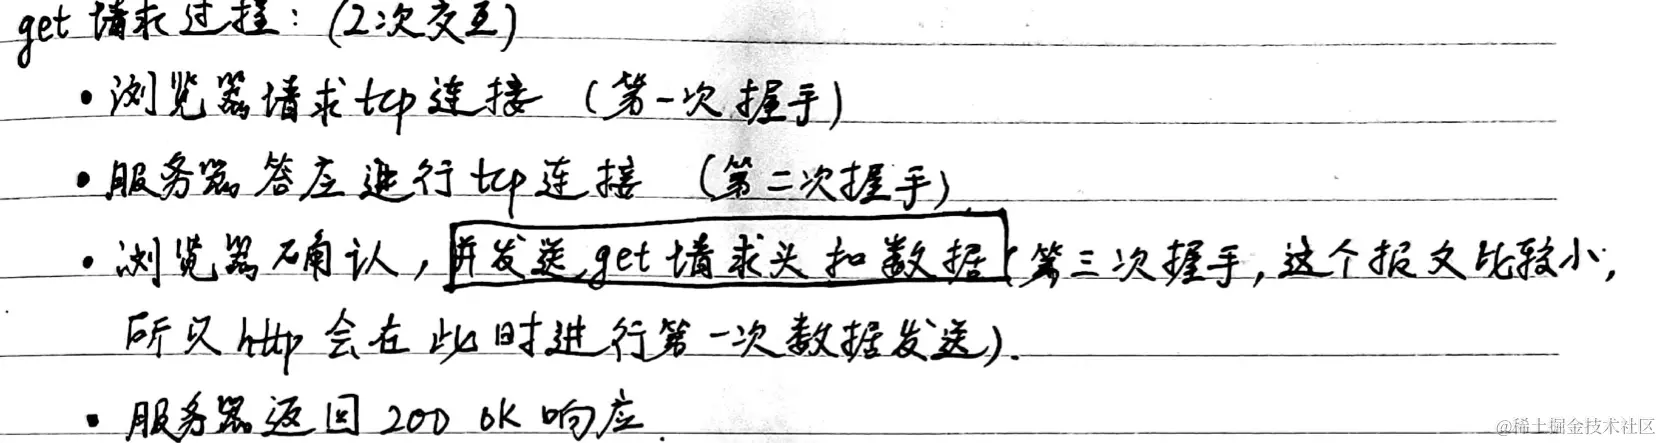 get 请求过程：(2次交互)
• 浏览器请求tcp连接 (第一次握手)
• 服务器答应进行tcp连接 (第二次握手)
• 浏览器确认，并发送get请求头和数据(第三次握手,这个报文比较小,
所以http会在此时进行第一次数据发送).
• 服务器返回 200 OK 响应.
@稀土掘金技术社区